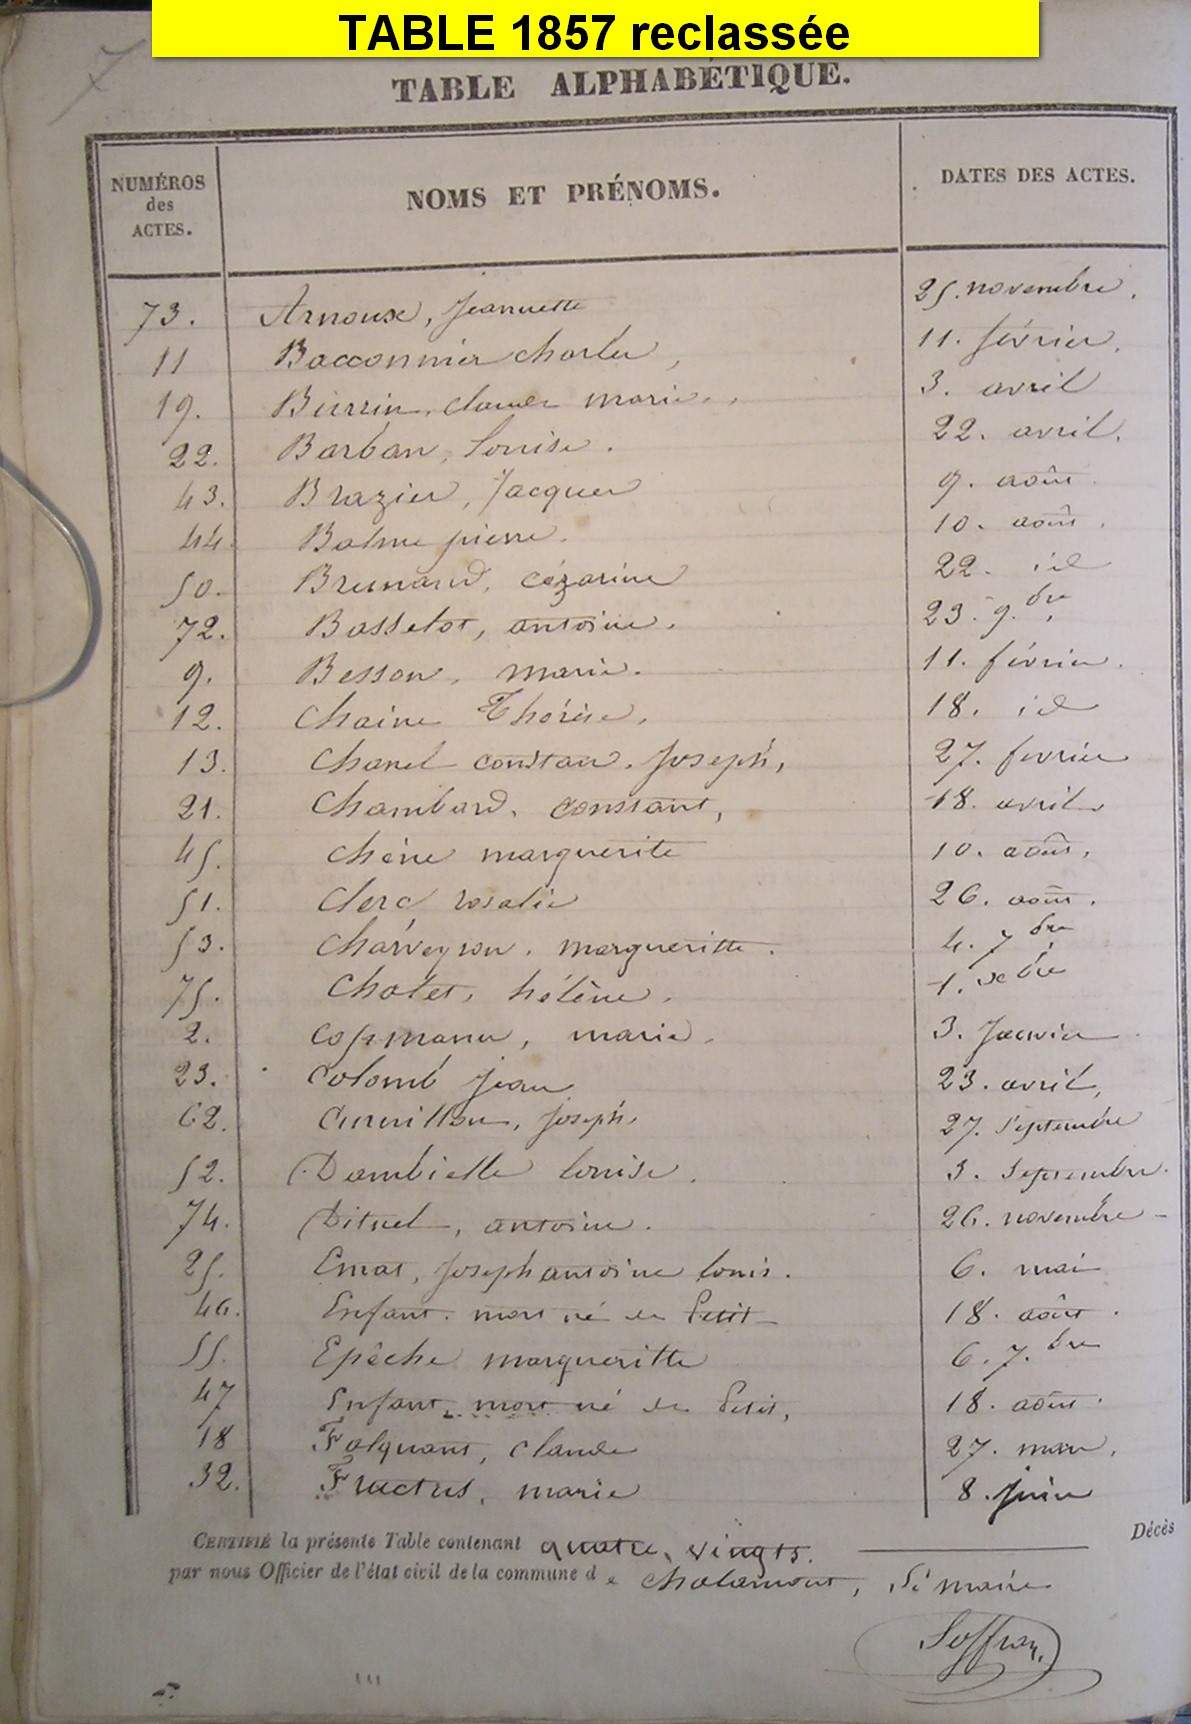 TABLE 1857 reclassée
TABLE ALPHABÉTIQUE.
NUMÉROS des ACTES. NOMS ET PRÉNOMS. DATES DES ACTES.
73. Arnoux, Jeannette 25. novembre.
11 Bacconnier charles, 11. février.
19. claude marie. 3. avril
22. Barban, Louise. 22. avril.
43. Brazier, Jacques 9. août.
44. Balme pierre. 10. août.
50. Brunand, cézarine 22. id
72. Basselot, antoine. 23. 9.bre
9. Besson, marie. 11. février.
12. Chaine Thérèse, 18. id
13. Chanel constan. Joseph, 27. fevrier
21. Chambard, constant, 18. avril.
45. chêne marguerite 10. août.
51. Clerc rosalie 26. août.
53. Charveyron. margueritte. 4. 7bre
75. Cholet, hélène. 1. xbre
2. marie. 3. Janvier
23. Colomb Jean 23. avril,
62. Joseph, 27. Septembre
52. Dambielle louise. 3. Septembre.
74. antoine. 26. novembre -
25. Emat, Joseph antoine louis. 6. mai
46. Enfant. mort né de Petit 18. août.
55. Epêche margueritte 6. 7.bre
47 Enfant mort né de Petit, 18. août.
18 Falquant, claude 27. mars.
32. Fructus, marie 8. juin
CERTIFIÉ la présente Table contenant quatre vingts. Décès
par nous Officier de l'état civil de la commune de Chalamont, Le maire